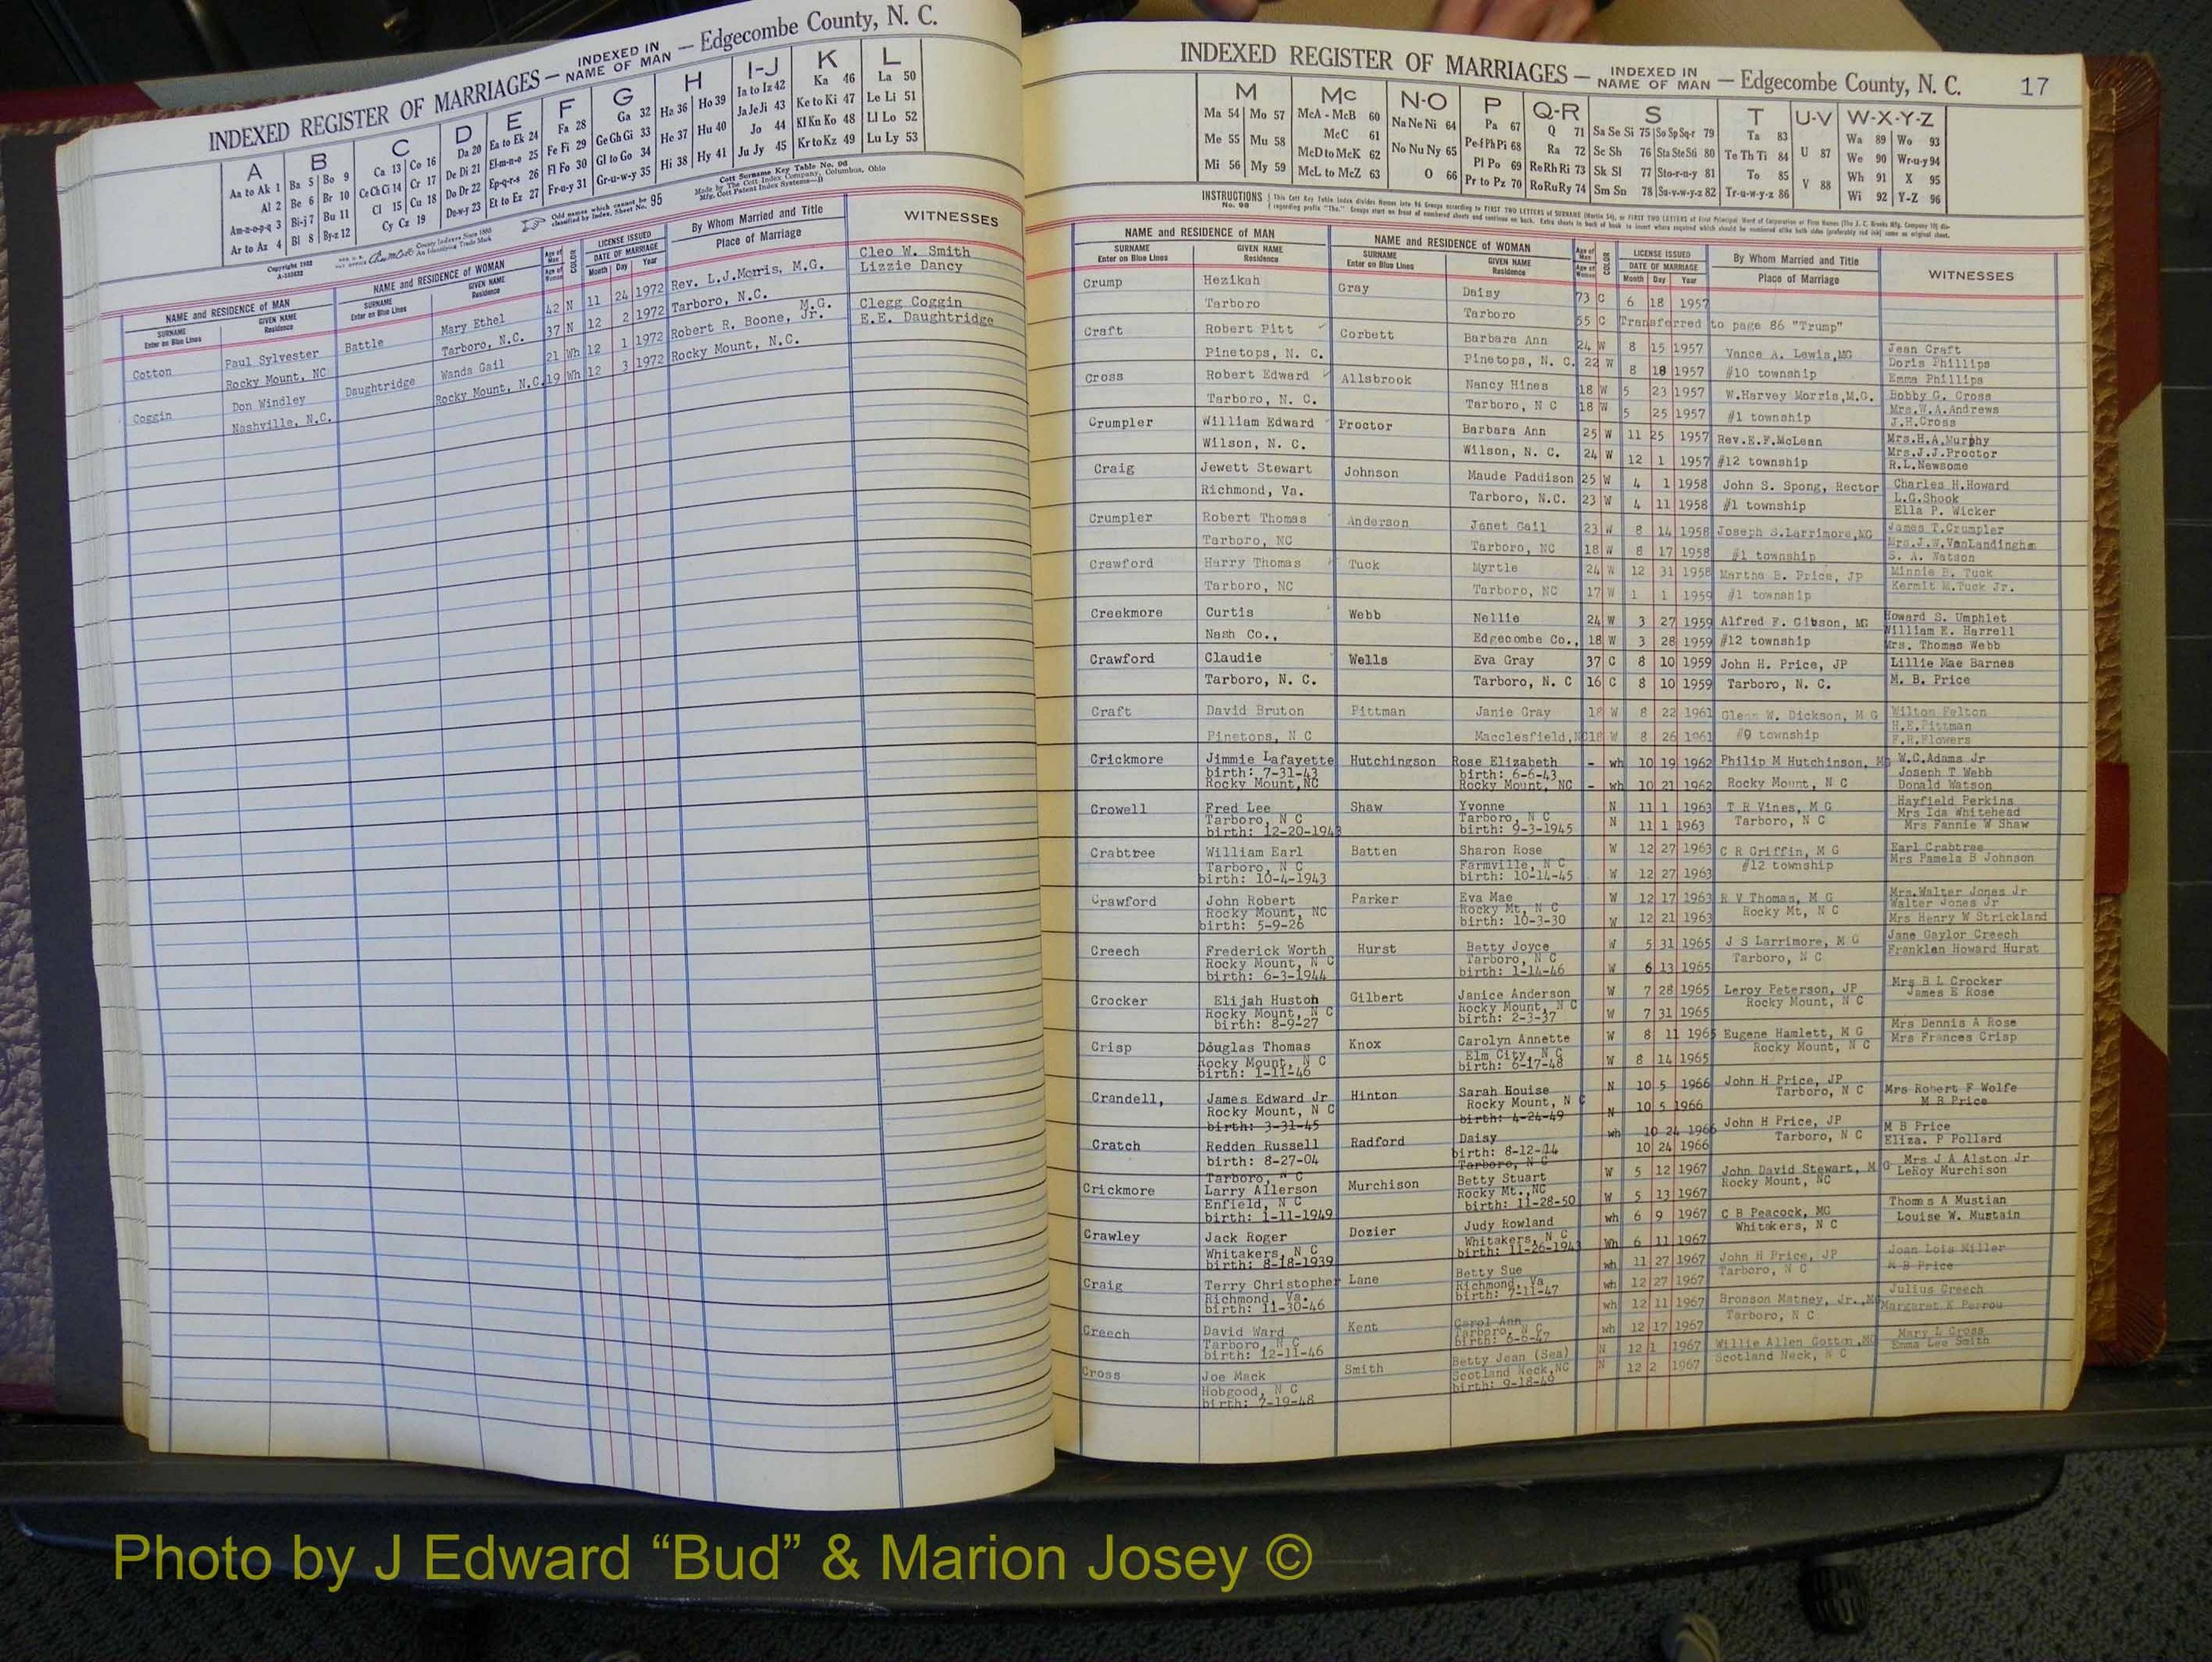 INDEXED REGISTER OF MARRIAGES — INDEXED IN NAME OF MAN — Edgecombe County, N. C.
A B C D E F G H I-J K L
Aa to Ak 1 Ba 5 Bo 9 Ca 13 Co 16 Da 20 Ea to Ek 24 Fa 28 Ga 32 Ha 36 Ho 39 Ia to Iz 42 Ka 46 La 50
Al 2 Be 6 Br 10 Ce Ch Ci 14 Cr 17 De Di 21 El-m-n-o 25 Fe Fi 29 Ge Gh Gi 33 He 37 Hu 40 Ja Je Ji 43 Ke to Ki 47 Le Li 51
Am-n-o-p-q 3 Bi-j 7 Bu 11 Cl 15 Cu 18 Do Dr 22 Ep-q-r-s 26 Fl Fo 30 Gl to Go 34 Hi 38 Hy 41 Jo 44 Kl Kn Ko 48 Ll Lo 52
Ar to Az 4 Bl 8 By-z 12 Cy Cz 19 Du-w-y 23 Et to Ez 27 Fr-u-y 31 Gr-u-w-y 35 Ju Jy 45 Kr to Kz 49 Lu Ly 53
Copyright 1932
Odd names which cannot be classified by Index, Sheet No. 95
Cott Surname Key Table No. 96
Made by The Cott Index Company, Columbus, Ohio
NAME and RESIDENCE of MAN NAME and RESIDENCE OF WOMAN COLOR LICENSE ISSUED By Whom Married and Title WITNESSES
SURNAME Enter on Blue Lines GIVEN NAME Residence SURNAME Enter on Blue Lines GIVEN NAME Residence DATE OF MARRIAGE Month Day Year Place of Marriage
Cotton Paul Sylvester Battle Mary Ethel 42 N 11 24 1972 Rev. L.J.Morris, M.G. Cleo W. Smith
Rocky Mount, NC Tarboro, N.C. 37 N 12 2 1972 Tarboro, N.C. Lizzie Dancy
Coggin Don Windley Daughtridge Wanda Gail 21 Wh 12 1 1972 Robert R. Boone, Jr. M.G. Clegg Coggin
Nashville, N.C. Rocky Mount, N.C. 19 Wh 12 3 1972 Rocky Mount, N.C. E.E. Daughtridge
INDEXED REGISTER OF MARRIAGES — INDEXED IN NAME OF MAN — Edgecombe County, N. C. 17
M Mc N-O P Q-R S T U-V W-X-Y-Z
Ma 54 Mo 57 McA - McB 60 Na Ne Ni 64 Pa 67 Q 71 Sa Se Si 75 So Sp Sq-r 79 Ta 83 U 87 Wa 89 Wo 93
Me 55 Mu 58 McC 61 No Nu Ny 65 Pe-f Ph Pi 68 Ra 72 Sc Sh 76 Sta Ste Sti 80 Te Th Ti 84 V 88 We 90 Wr-u-y 94
Mi 56 My 59 McD to McK 62 O 66 Pl Po 69 Re Rh Ri 73 Sk Sl 77 Sto-r-u-y 81 To 85 Wh 91 X 95
McL to McZ 63 Pr to Pz 70 Ro Ru Ry 74 Sm Sn 78 Su-v-w-y-z 82 Tr-u-w-y-z 86 Wi 92 Y-Z 96
INSTRUCTIONS
NAME and RESIDENCE OF MAN NAME and RESIDENCE OF WOMAN COLOR LICENSE ISSUED By Whom Married and Title WITNESSES
SURNAME Enter on Blue Lines GIVEN NAME Residence SURNAME Enter on Blue Lines GIVEN NAME Residence DATE OF MARRIAGE Month Day Year Place of Marriage
Crump Hezikah Gray Daisy 73 C 6 18 1957
Tarboro Tarboro 55 C Transferred to page 86 "Trump"
Craft Robert Pitt Corbett Barbara Ann 24 W 8 15 1957 Vance A. Lewis,MG Jean Craft
Doris Phillips
Pinetops, N. C. Pinetops, N. C. 22 W 8 18 1957 #10 township Emma Phillips
Cross Robert Edward Allsbrook Nancy Hines 18 W 5 23 1957 W.Harvey Morris,M.G. Bobby G. Cross
Mrs.W.A.Andrews
Tarboro, N. C. Tarboro, N C 18 W 5 25 1957 #1 township J.H.Cross
Crumpler William Edward Proctor Barbara Ann 25 W 11 25 1957 Rev.E.F.McLean Mrs.H.A.Murphy
Mrs.J.J.Proctor
Wilson, N. C. Wilson, N. C. 24 W 12 1 1957 #12 township R.L.Newsome
Craig Jewett Stewart Johnson Maude Paddison 25 W 4 1 1958 John S. Spong, Rector Charles H.Howard
L.G.Shook
Richmond, Va. Tarboro, N.C. 23 W 4 11 1958 #1 township Ella P. Wicker
Crumpler Robert Thomas Anderson Janet Gail 23 W 8 14 1958 Joseph S.Larrimore,MG James T.Crumpler
Mrs.J.W.VanLandingham
Tarboro, NC Tarboro, NC 18 W 8 17 1958 #1 township S. A. Watson
Crawford Harry Thomas Tuck Myrtle 24 W 12 31 1958 Martha B. Price, JP Minnie B. Tuck
Tarboro, NC Tarboro, NC 17 W 1 1 1959 #1 township Kermit M.Tuck Jr.
Creekmore Curtis Webb Nellie 24 W 3 27 1959 Alfred F. Gibson, MG Howard S. Umphlet
William E. Harrell
Nash Co., Edgecombe Co., 18 W 3 28 1959 #12 township Mrs. Thomas Webb
Crawford Claudie Wells Eva Gray 37 C 8 10 1959 John H. Price, JP Lillie Mae Barnes
Tarboro, N. C. Tarboro, N. C 16 C 8 10 1959 Tarboro, N. C. M. B. Price
Craft David Bruton Pittman Janie Gray 18 W 8 22 1961 Glenn W. Dickson, M G Wilton Felton
H.E.Pittman
Pinetops, N C Macclesfield,NC 18 W 8 26 1961 #9 township F.R.Flowers
Crickmore Jimmie Lafayette Hutchingson Rose Elizabeth - wh 10 19 1962 Philip M Hutchinson, MG W.C.Adams Jr
birth: 7-31-43 birth: 6-6-43 Joseph T Webb
Rocky Mount,NC Rocky Mount, NC - wh 10 21 1962 Rocky Mount, N C Donald Watson
Crowell Fred Lee Shaw Yvonne N 11 1 1963 T R Vines, M G Hayfield Perkins
Tarboro, N C Tarboro, N C N 11 1 1963 Tarboro, N C Mrs Ida Whitehead
birth: 12-20-1943 birth: 9-3-1945 Mrs Fannie W Shaw
Crabtree William Earl Batten Sharon Rose W 12 27 1963 C R Griffin, M G Earl Crabtree
Tarboro, N C Farmville, N C #12 township Mrs Pamela B Johnson
birth: 10-4-1943 birth: 10-14-45 W 12 27 1963
Crawford John Robert Parker Eva Mae W 12 17 1963 R V Thomas, M G Mrs.Walter Jones Jr
Rocky Mount, NC Rocky Mt, N C Rocky Mt, N C Walter Jones Jr
birth: 5-9-26 birth: 10-3-30 W 12 21 1963 Mrs Henry W Strickland
Creech Frederick Worth Hurst Betty Joyce W 5 31 1965 J S Larrimore, M G Jane Gaylor Creech
Rocky Mount, N C Tarboro, N C Tarboro, N C Franklen Howard Hurst
birth: 6-3-1944 birth: 1-14-46 W 6 13 1965
Crocker Elijah Huston Gilbert Janice Anderson W 7 28 1965 Leroy Peterson, JP Mrs B L Crocker
Rocky Mount, N C Rocky Mount, N C Rocky Mount, N C James E Rose
birth: 8-9-27 birth: 2-3-37 W 7 31 1965
Crisp Douglas Thomas Knox Carolyn Annette W 8 11 1965 Eugene Hamlett, M G Mrs Dennis A Rose
Rocky Mount, N C Elm City, N C Rocky Mount, N C Mrs Frances Crisp
birth: 1-11-46 birth: 6-17-48 W 8 14 1965
Crandell, James Edward Jr Hinton Sarah Houise N 10 5 1966 John H Price, JP Mrs Robert F Wolfe
Rocky Mount, N C Rocky Mount, N C Tarboro, N C M B Price
birth: 3-31-45 birth: 4-24-49 N 10 5 1966
Cratch Redden Russell Radford Daisy wh 10 24 1966 John H Price, JP M B Price
birth: 8-27-04 birth: 8-12-14 10 24 1966 Tarboro, N C Eliza. P Pollard
Tarboro, N C Tarboro, N C
Crickmore Larry Allerson Murchison Betty Stuart W 5 12 1967 John David Stewart, M G Mrs J A Alston Jr
Enfield, N C Rocky Mt.,NC Rocky Mount, NC LeRoy Murchison
birth: 1-11-1949 birth: 11-28-50 W 5 13 1967
Crawley Jack Roger Dozier Judy Rowland wh 6 9 1967 C B Peacock, MG Thomas A Mustian
Whitakers, N C Whitakers, N C Whitakers, N C Louise W. Mustain
birth: 8-18-1939 birth: 11-26-1941 Wh 6 11 1967
Craig Terry Christopher Lane Betty Sue wh 11 27 1967 John H Price, JP Joan Lois Miller
Richmond, Va. Richmond, Va Tarboro, N C M B Price
birth: 11-30-46 birth: 7-11-47 wh 12 27 1967
Creech David Ward Kent Carol Ann wh 12 11 1967 Bronson Matney, Jr.,MG Julius Creech
Tarboro, N C Tarboro, N C Tarboro, N C Margaret K Perrou
birth: 12-11-46 birth: 6-6-47 wh 12 17 1967
Cross Joe Mack Smith Betty Jean (Sea) N 12 1 1967 Willie Allen Cotton,MG Mary L Cross
Hobgood, N C Scotland Neck,NC N 12 2 1967 Scotland Neck, N C Emma Lee Smith
birth: 7-19-48 birth: 9-18-49
Photo by J Edward “Bud” & Marion Josey ©